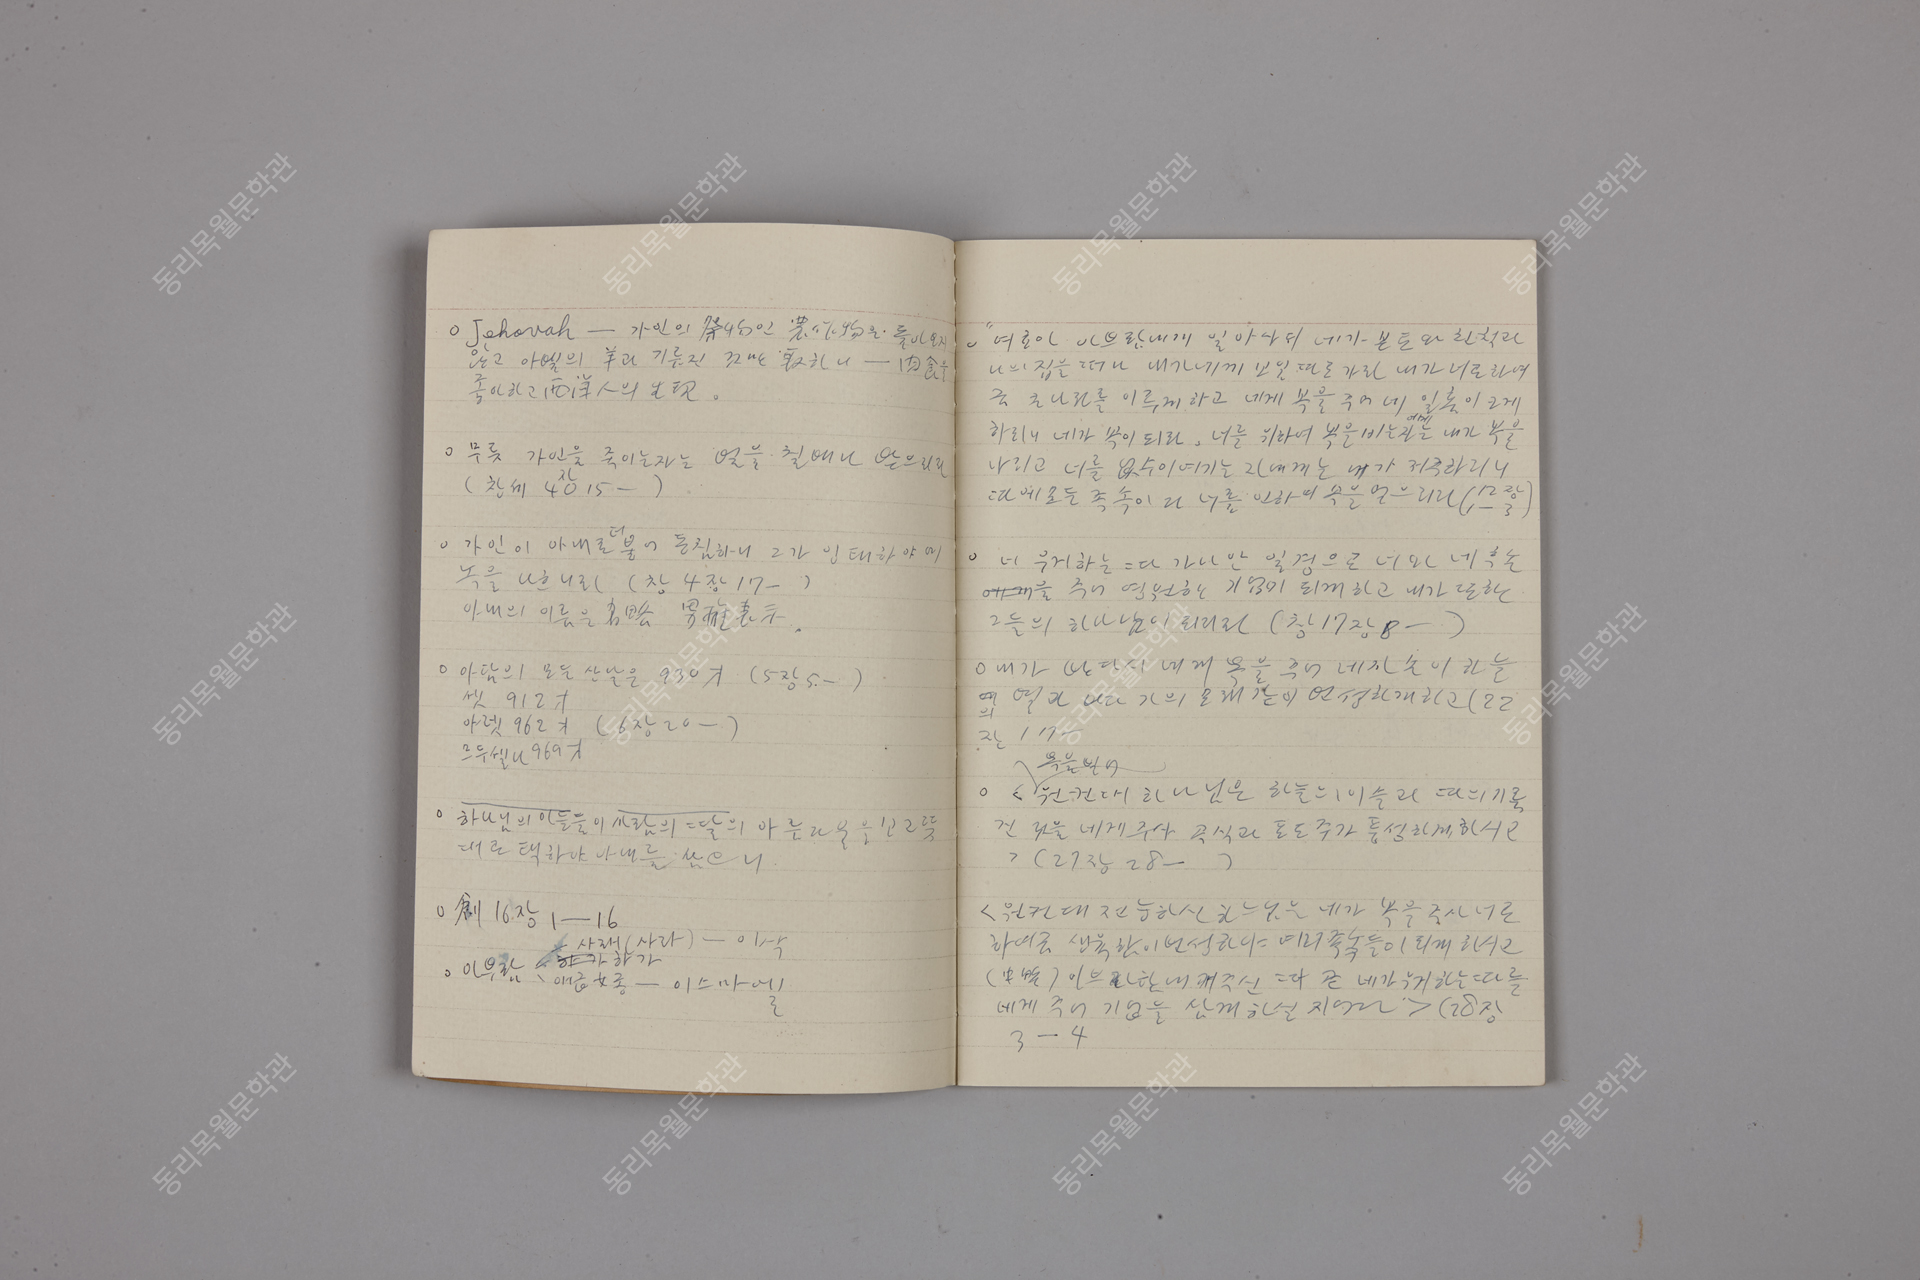 o Jehovah — 가인의 農作物을 돌아보지
않고 아벨의 羊과 기름진 — 肉食을
좋아하고 西洋人의 出現。
o 무릇 가인을 죽이는자는 벌을 칠배나 받으리라
(창세 4장 15— )
o 가인이 아내로 더불어 동침하니 그가 잉태하야
녹을 나흐니라 (창 4장 17— )
아내의 이름은
o 아담의 모든 산날은 930才 (5장 5.— )
셋 912才
야렛 962才 (6장 20— )
므두셀나 969才
o 하나님의 아들들이 사람의 딸의 아름다움을 보고 뜻
대로 택하야 아내를 삼으니.
o 創 16장 1—16
사래(사라) — 이삭
o 아부람 하가
애급女종 — 이스마엘
o "여호아 아브람에게 일아사되 네가 본토와 친척과
너의 집을 떠나 내가네게 보일 따로가라 내가 너로하여
곳 큰나라를 이루게하고 네게 복을 주어 네 일홈이 크게
하리니 네가 복이 되라. 너를 위하여 복을 비는자는 내가 복을
에게
나리고 너를 이여기는 내가 저주하리니
따에 모든 족속이 다 너를 인하여 복을 얻으리라 (12장
1—3)
o 너 우거하는 따 가나안 일경으로 너와 네 후손
을 주어 영원한 기업이 되게하고 내가 또한
그들의 하나님이 되리라 (창 17장 8— )
o 내가 반다시 네게 복을 주어 네자손이 하늘
에 별과 바다 가의 모래같이 번성하게하고 (22
의
장 17—
복을빌어
o <원컨대 하나님은 하늘의 이슬과 따의 기름
진 것을 네게주사 곡식과 포도주가 풍성하게하시고
> (27장 28— )
<원컨대 전능하신 하느님은 네가 복을 주사 너로
하여곰 생육한이 번성하야 여러족속들이 되게하시고
(中略) 아브라함에게주신 따 곧 네가우거하는따를
네게 주어 기업을 삼게하실 지어다> (28장
3—4
동리목월문학관
동리목월문학관
동리목월문학관
동리목월문학관
동리목월문학관
동리목월문학관
동리목월문학관
동리목월문학관
동리목월문학관
동리목월문학관
동리목월문학관
동리목월문학관